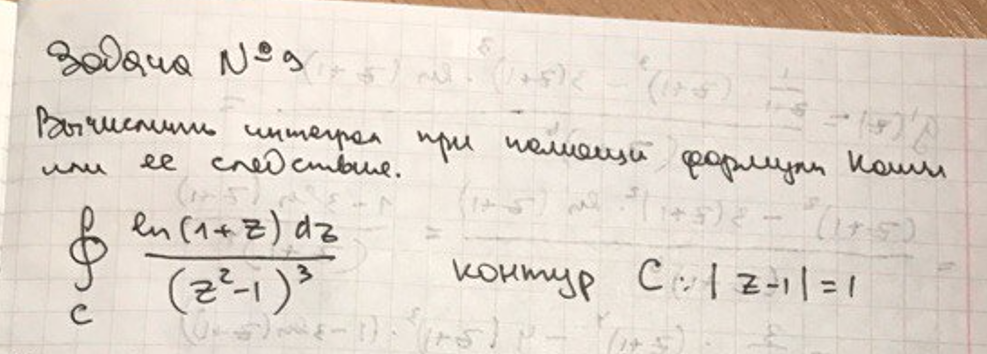 Задача №9
Вычислить интеграл при помощи формулы Коши
или ее следствие.
∮ ln(1+z) dz / (z²-1)³ контур C: |z-1|=1
C